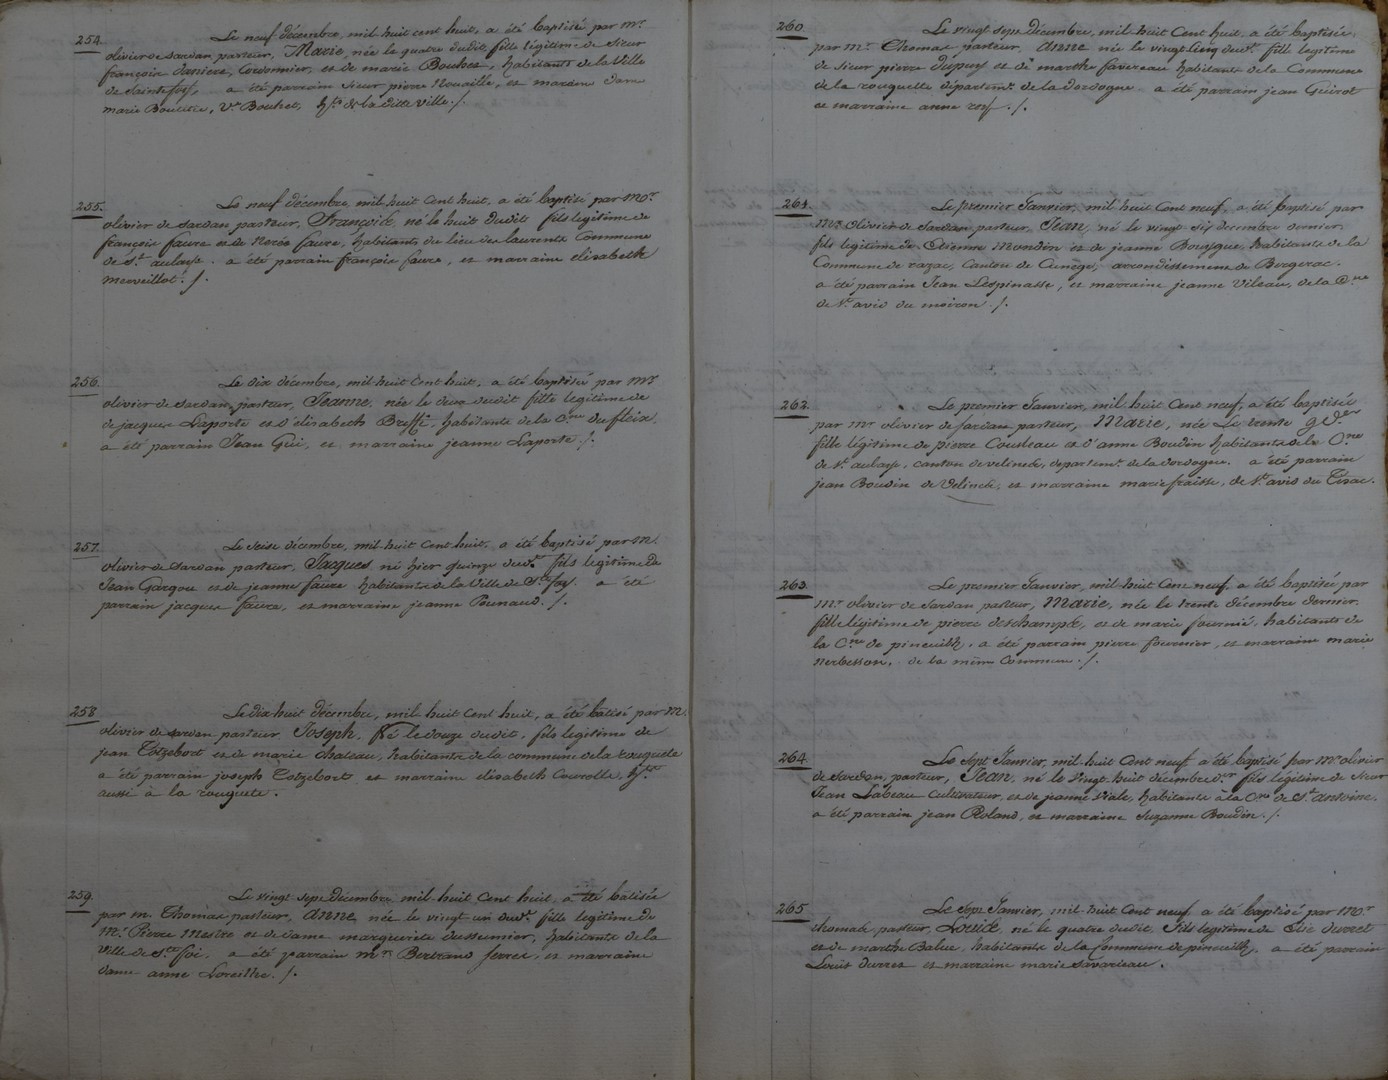 254. Le neuf décembre, mil huit cent huit, a été baptisé par Mr
olivier de Sardan pasteur, Marie, née le quatre dudit fille légitime de Sieur
françois daniere, Cordonnier, et de marie Bouhet, habitants de la Ville
de Saintefoy, a été parrain Sieur pierre Nouaille, et maraine dame
marie Ve Bouhet, hte de la ditte Ville ./.
255. Le neuf décembre, mil huit Cent huit, a été baptisé par Mr
olivier de Sardan pasteur, François né le huit dudit fils legitime de
françois faure et de Nerée faure, habitants du lieu des laurents Commune
de St. aulaye. a été parrain françois faure, et marraine elisabeth
merveillot. /.
256. Le dix décembre, mil huit Cent huit, a été baptisée par Mr
olivier de Sardan pasteur, Jeanne, née le deux dudit fille légitime de
de jacques Laporte et d'élisabeth habitants de la Cne du fleix,
a été parrain Jean Gui, et marraine jeanne Laporte ./.
257. Le Seise décembre, mil huit Cent huit, a été baptisé par M.
olivier de Sardan pasteur, Jacques né hier quinze dudt. fils legitime de
Jean Gargou et de jeanne faure habitants de la Ville de Ste foy. a été
parrain jacques faure, et marraine jeanne Pounaud. /.
258 Le dix huit décembre, mil huit Cent huit, a été batisé par M.
olivier de Sardan pasteur Joseph, Né le douze dudit, fils legitime de
jean Totzebort et de marie chateau, habitants de la commune de la rouquete
a été parrain joseph Totzebort et marraine elisabeth Courolle, hte
aussi à la rouquete.
259. Le vingt sept décembre mil huit Cent huit, a été batisée
par m. Thomas pasteur, Anne née le vingt un dudt. fille legitime de
Mr. Pierre Mestre et de dame marguerite dussumier, habitants de la
Ville de Ste foi, a été parrain mr. Bertrand ferret, et marraine
dame anne Loreilhe. /.
260. Le vingt sept décembre, mil huit Cent huit, a été baptisée
par mr Thomas pasteur, Anne née le vingt cinq dudt. fille legitime
de Sieur pierre dupuy et de marthe favereau habitants de la Commune
de la rouquette départemt. de la dordogne a été parrain jean Guirot
et marraine anne rey ./.
261. Le premier Janvier, mil huit Cent neuf, a été baptisé par
Mr olivier de Sardan pasteur, Jean, né le vingt six decembre dernier.
fils legitime de Etienne Mondin et de jeanne Bousque, habitants de la
Commune de razac, Canton de Cunège, arrondissement de Bergerac.
a été parrain Jean Lespinasse, et marraine jeanne Vileau, de la Cne
de St. avid du moiron ./.
262. Le premier Janvier, mil huit Cent neuf, a été baptisée
par Mr olivier de Sardan pasteur, Marie, née Le trente
fille légitime de pierre Cousteau et d'anne Boudin habitants de la Cne
de St. aulaye, canton de velinch, departemt. de la dordogne. a été parrain
jean Boudin de Velinch, et marraine marie fraisse, de St. avis du Tisac.
263. Le premier Janvier, mil huit Cent neuf. a été baptisée par
Mr olivier de Sardan pasteur, Marie, née le trente décembre dernier.
fille légitime de pierre deschamps, et de marie fournié, habitants de
la Cne de pineuilh, a été parrain pierre fournier, et marraine marie
nerbesson, de la même Commune ./.
264 Le Sept Janvier, mil huit Cent neuf a été baptisé par Mr olivier
de Sardan, pasteur, Jean, né le Vingt huit décembre der fils légitime de Sieur
Jean Labeau Cultivateur, et de jeanne Viale, habitants à la Cne de St. antoine.
a été parrain jean Roland, et marraine Suzanne Boudin. /.
265 Le Sept Janvier, mil huit Cent neuf, a été baptisé par Mr.
thomas pasteur, Louis, né le quatre dudit. fils legitime de Elie durret
et de marthe Balue, habitants de la Commune de pineuilh, a été parrain
Louis durret et marraine marie Savariau.